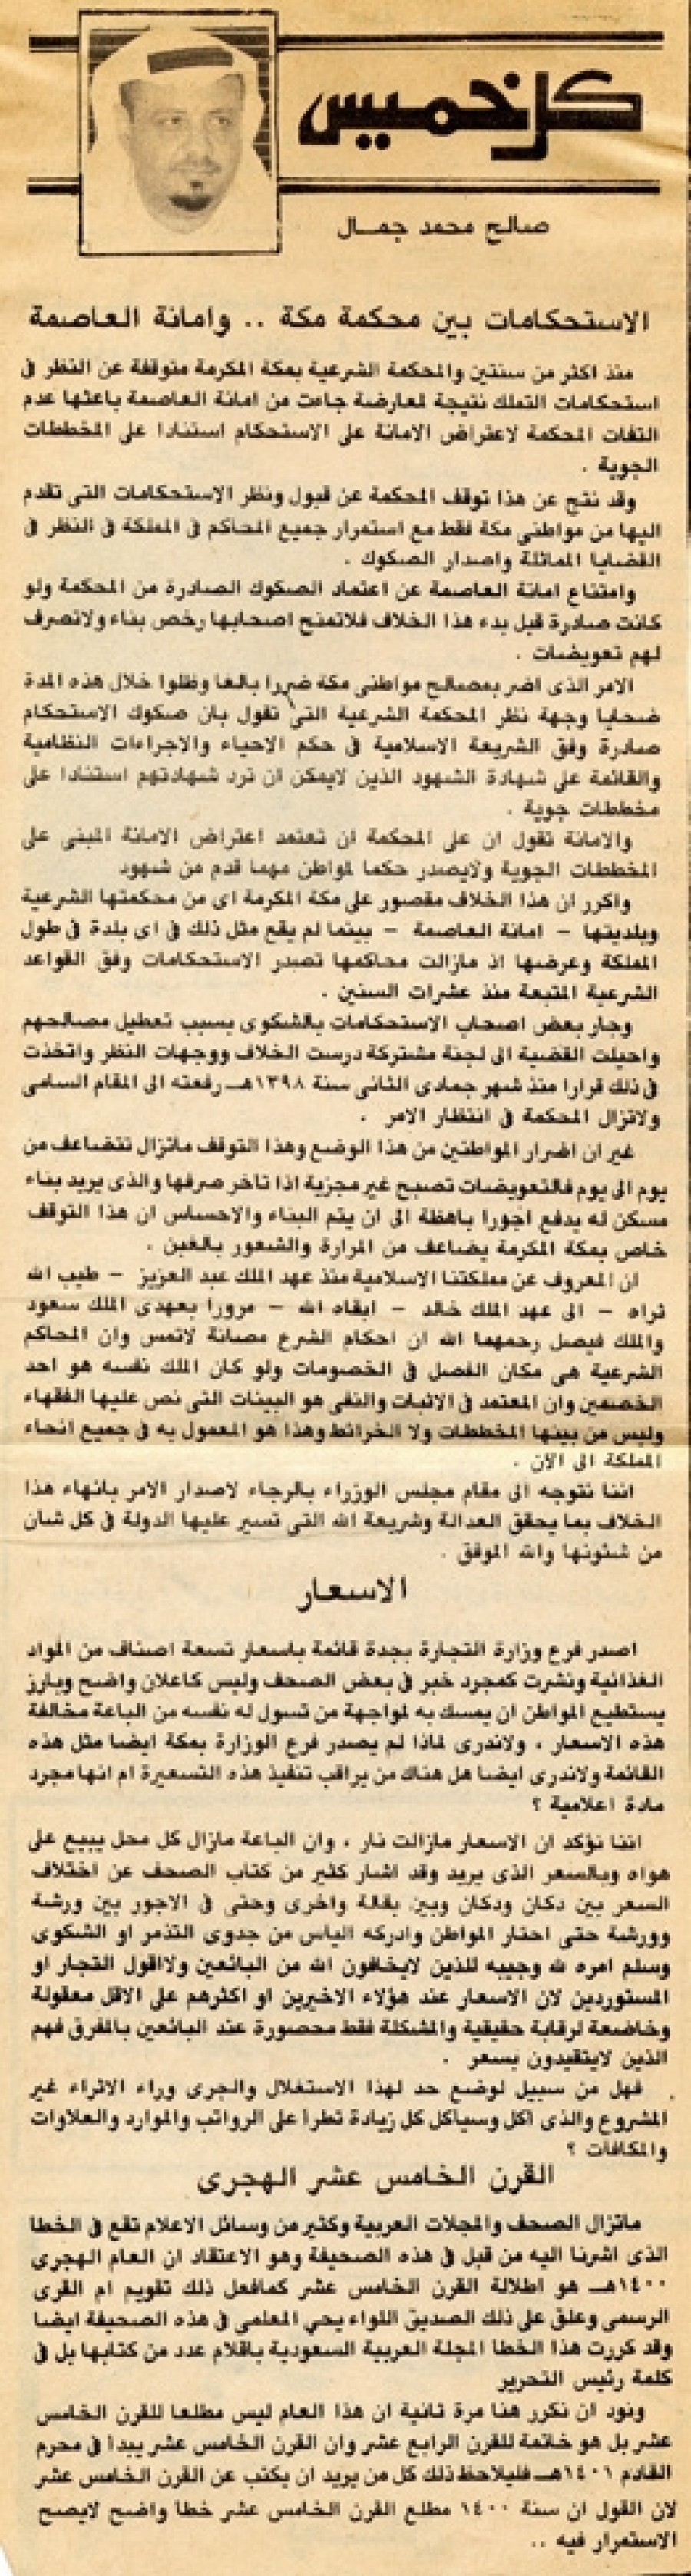 كل خميس
صالح محمد جمال
الاستحكامات بين محكمة مكة .. وامانة العاصمة
منذ اكثر من سنتين والمحكمة الشرعية بمكة المكرمة متوقفة عن النظر في
استحكامات التملك نتيجة لمعارضة جاءت من امانة العاصمة باعثها عدم
التفات المحكمة لاعتراض الامانة على الاستحكام استنادا على المخططات
الجوية .
وقد نتج عن هذا توقف المحكمة عن قبول ونظر الاستحكامات التى تقدم
اليها من مواطنى مكة فقط مع استمرار جميع المحاكم في المملكة في النظر في
القضايا المماثلة واصدار الصكوك .
وامتناع امانة العاصمة عن اعتماد الصكوك الصادرة من المحكمة ولو
كانت صادرة قبل بدء هذا الخلاف فلاتمنح اصحابها رخص بناء ولاتصرف
لهم تعويضات .
الامر الذى اضر بمصالح مواطنى مكة ضررا بالغا وظلوا خلال هذه المدة
ضحايا وجهة نظر المحكمة الشرعية التى تقول بان صكوك الاستحكام
صادرة وفق الشريعة الاسلامية في حكم الاحياء والاجراءات النظامية
والقائمة على شهادة الشهود الذين لايمكن ان ترد شهادتهم استنادا على
مخططات جوية .
والامانة تقول ان على المحكمة ان تعتمد اعتراض الامانة المبنى على
المخططات الجوية ولايصدر حكما لمواطن مهما قدم من شهود
واكرر ان هذا الخلاف مقصور على مكة المكرمة اى من محكمتها الشرعية
وبلديتها - امانة العاصمة - بينما لم يقع مثل ذلك في اى بلدة في طول
المملكة وعرضها اذ مازالت محاكمها تصدر الاستحكامات وفق القواعد
الشرعية المتبعة منذ عشرات السنين .
وجار بعض اصحاب الاستحكامات بالشكوى بسبب تعطيل مصالحهم
واحيلت القضية الى لجنة مشتركة درست الخلاف ووجهات النظر واتخذت
في ذلك قرارا منذ شهر جمادى الثانى سنة ١٣٩٨هـ رفعته الى المقام السامى
ولاتزال المحكمة في انتظار الامر .
غير ان اضرار المواطنين من هذا الوضع وهذا التوقف ماتزال تتضاعف من
يوم الى يوم فالتعويضات تصبح غير مجزية اذا تاخر صرفها والذى يريد بناء
مسكن له يدفع اجورا باهظة الى ان يتم البناء والاحساس ان هذا التوقف
خاص بمكة المكرمة يضاعف من المرارة والشعور بالغبن .
ان المعروف عن مملكتنا الاسلامية منذ عهد الملك عبد العزيز - طيب الله
ثراه - الى عهد الملك خالد - ابقاه الله - مرورا بعهدى الملك سعود
والملك فيصل رحمهما الله ان احكام الشرع مصانة لاتمس وان المحاكم
الشرعية هى مكان الفصل في الخصومات ولو كان الملك نفسه هو احد
الخصمين وان المعتمد في الاثبات والنفى هو البينات التى نص عليها الفقهاء
وليس من بينها المخططات ولا الخرائط وهذا هو المعمول به في جميع انحاء
المملكة الى الآن .
اننا نتوجه الى مقام مجلس الوزراء بالرجاء لاصدار الامر بانهاء هذا
الخلاف بما يحقق العدالة وشريعة الله التى تسير عليها الدولة في كل شان
من شئونها والله الموفق .
الاسعار
اصدر فرع وزارة التجارة بجدة قائمة باسعار تسعة اصناف من المواد
الغذائية ونشرت كمجرد خبر في بعض الصحف وليس كاعلان واضح وبارز
يستطيع المواطن ان يمسك به لمواجهة من تسول له نفسه من الباعة مخالفة
هذه الاسعار ، ولاندرى لماذا لم يصدر فرع الوزارة بمكة ايضا مثل هذه
القائمة ولاندرى ايضا هل هناك من يراقب تنفيذ هذه التسعيرة ام انها مجرد
مادة اعلامية ؟
اننا نؤكد ان الاسعار مازالت نار ، وان الباعة مازال كل محل يبيع على
هواه وبالسعر الذى يريد وقد اشار كثير من كتاب الصحف عن اختلاف
السعر بين دكان ودكان وبين بقالة واخرى وحتى في الاجور بين ورشة
وورشة حتى احتار المواطن وادركه الياس من جدوى التذمر او الشكوى
وسلم امره لله وجيبه للذين لايخافون الله من البائعين ولااقول التجار او
المستوردين لان الاسعار عند هؤلاء الاخيرين او اكثرهم على الاقل معقولة
وخاضعة لرقابة حقيقية والمشكلة فقط محصورة عند البائعين بالمفرق فهم
الذين لايتقيدون بسعر .
فهل من سبيل لوضع حد لهذا الاستغلال والجرى وراء الاثراء غير
المشروع والذى اكل وسياكل كل زيادة تطرا على الرواتب والموارد والعلاوات
والمكافات ؟
القرن الخامس عشر الهجرى
ماتزال الصحف والمجلات العربية وكثير من وسائل الاعلام تقع في الخطا
الذى اشرنا اليه من قبل في هذه الصحيفة وهو الاعتقاد ان العام الهجرى
١٤٠٠هـ هو اطلالة القرن الخامس عشر كمافعل ذلك تقويم ام القرى
الرسمى وعلق على ذلك الصديق اللواء يحي المعلمى في هذه الصحيفة ايضا
وقد كررت هذا الخطا المجلة العربية السعودية باقلام عدد من كتابها بل في
كلمة رئيس التحرير
ونود ان نكرر هنا مرة ثانية ان هذا العام ليس مطلعا للقرن الخامس
عشر بل هو خاتمة للقرن الرابع عشر وان القرن الخامس عشر يبدا في محرم
القادم ١٤٠١هـ فليلاحظ ذلك كل من يريد ان يكتب عن القرن الخامس عشر
لان القول ان سنة ١٤٠٠ مطلع القرن الخامس عشر خطا واضح لايصح
الاستمرار فيه ..